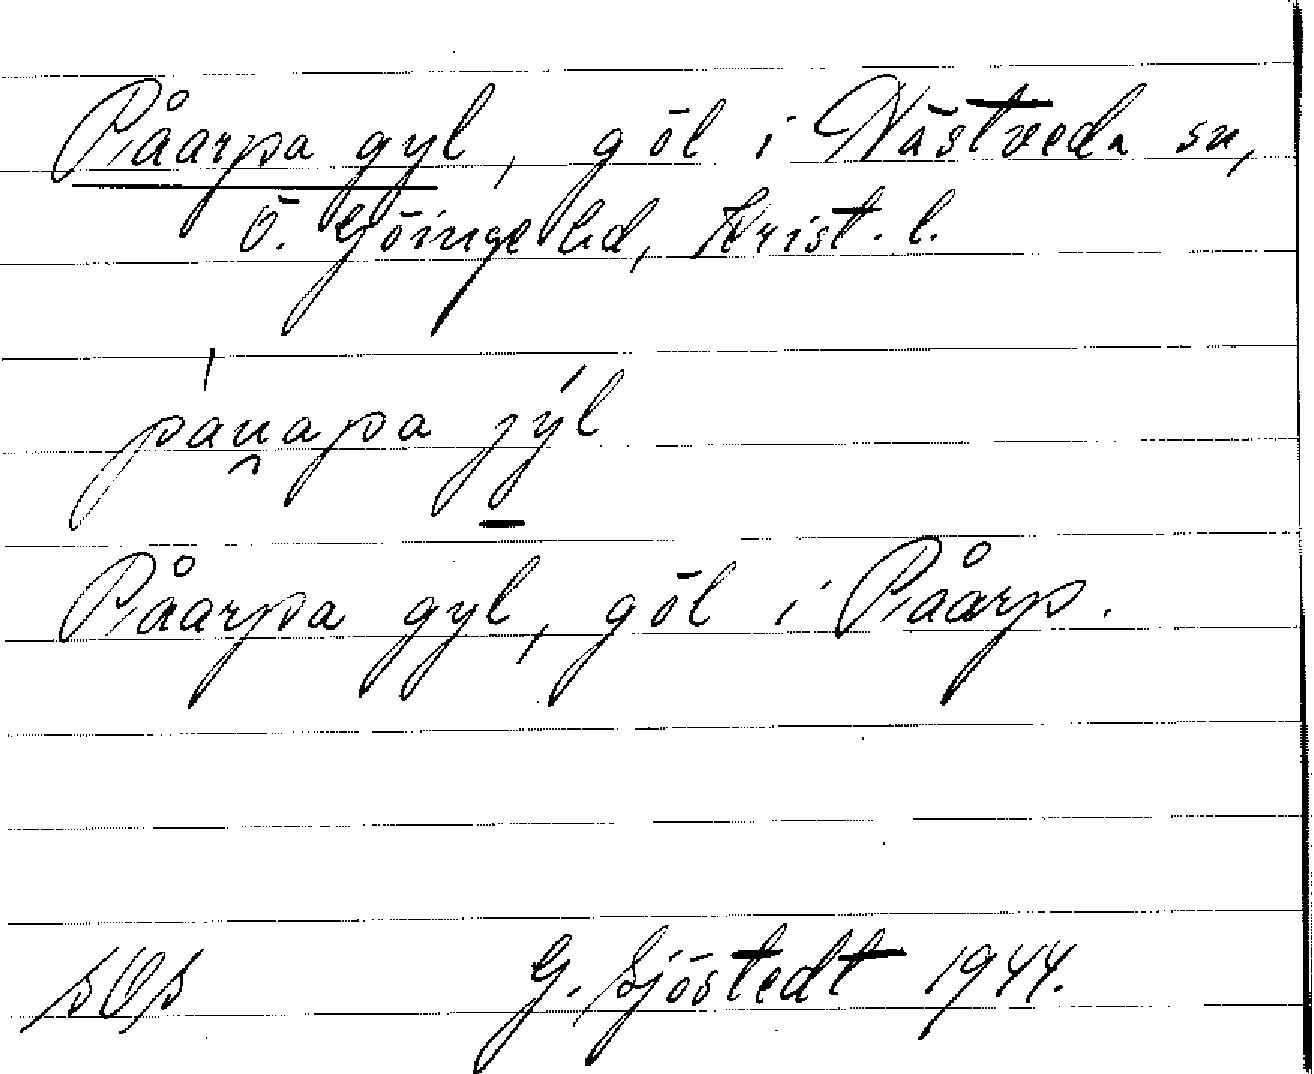 Påarpa gyl, göl i Näsveda sn,
Ö. Göinge hd, Krist. l.
jýl
Påarpa gyl, göl i Påarp.
G. Sjöstedt 1944.